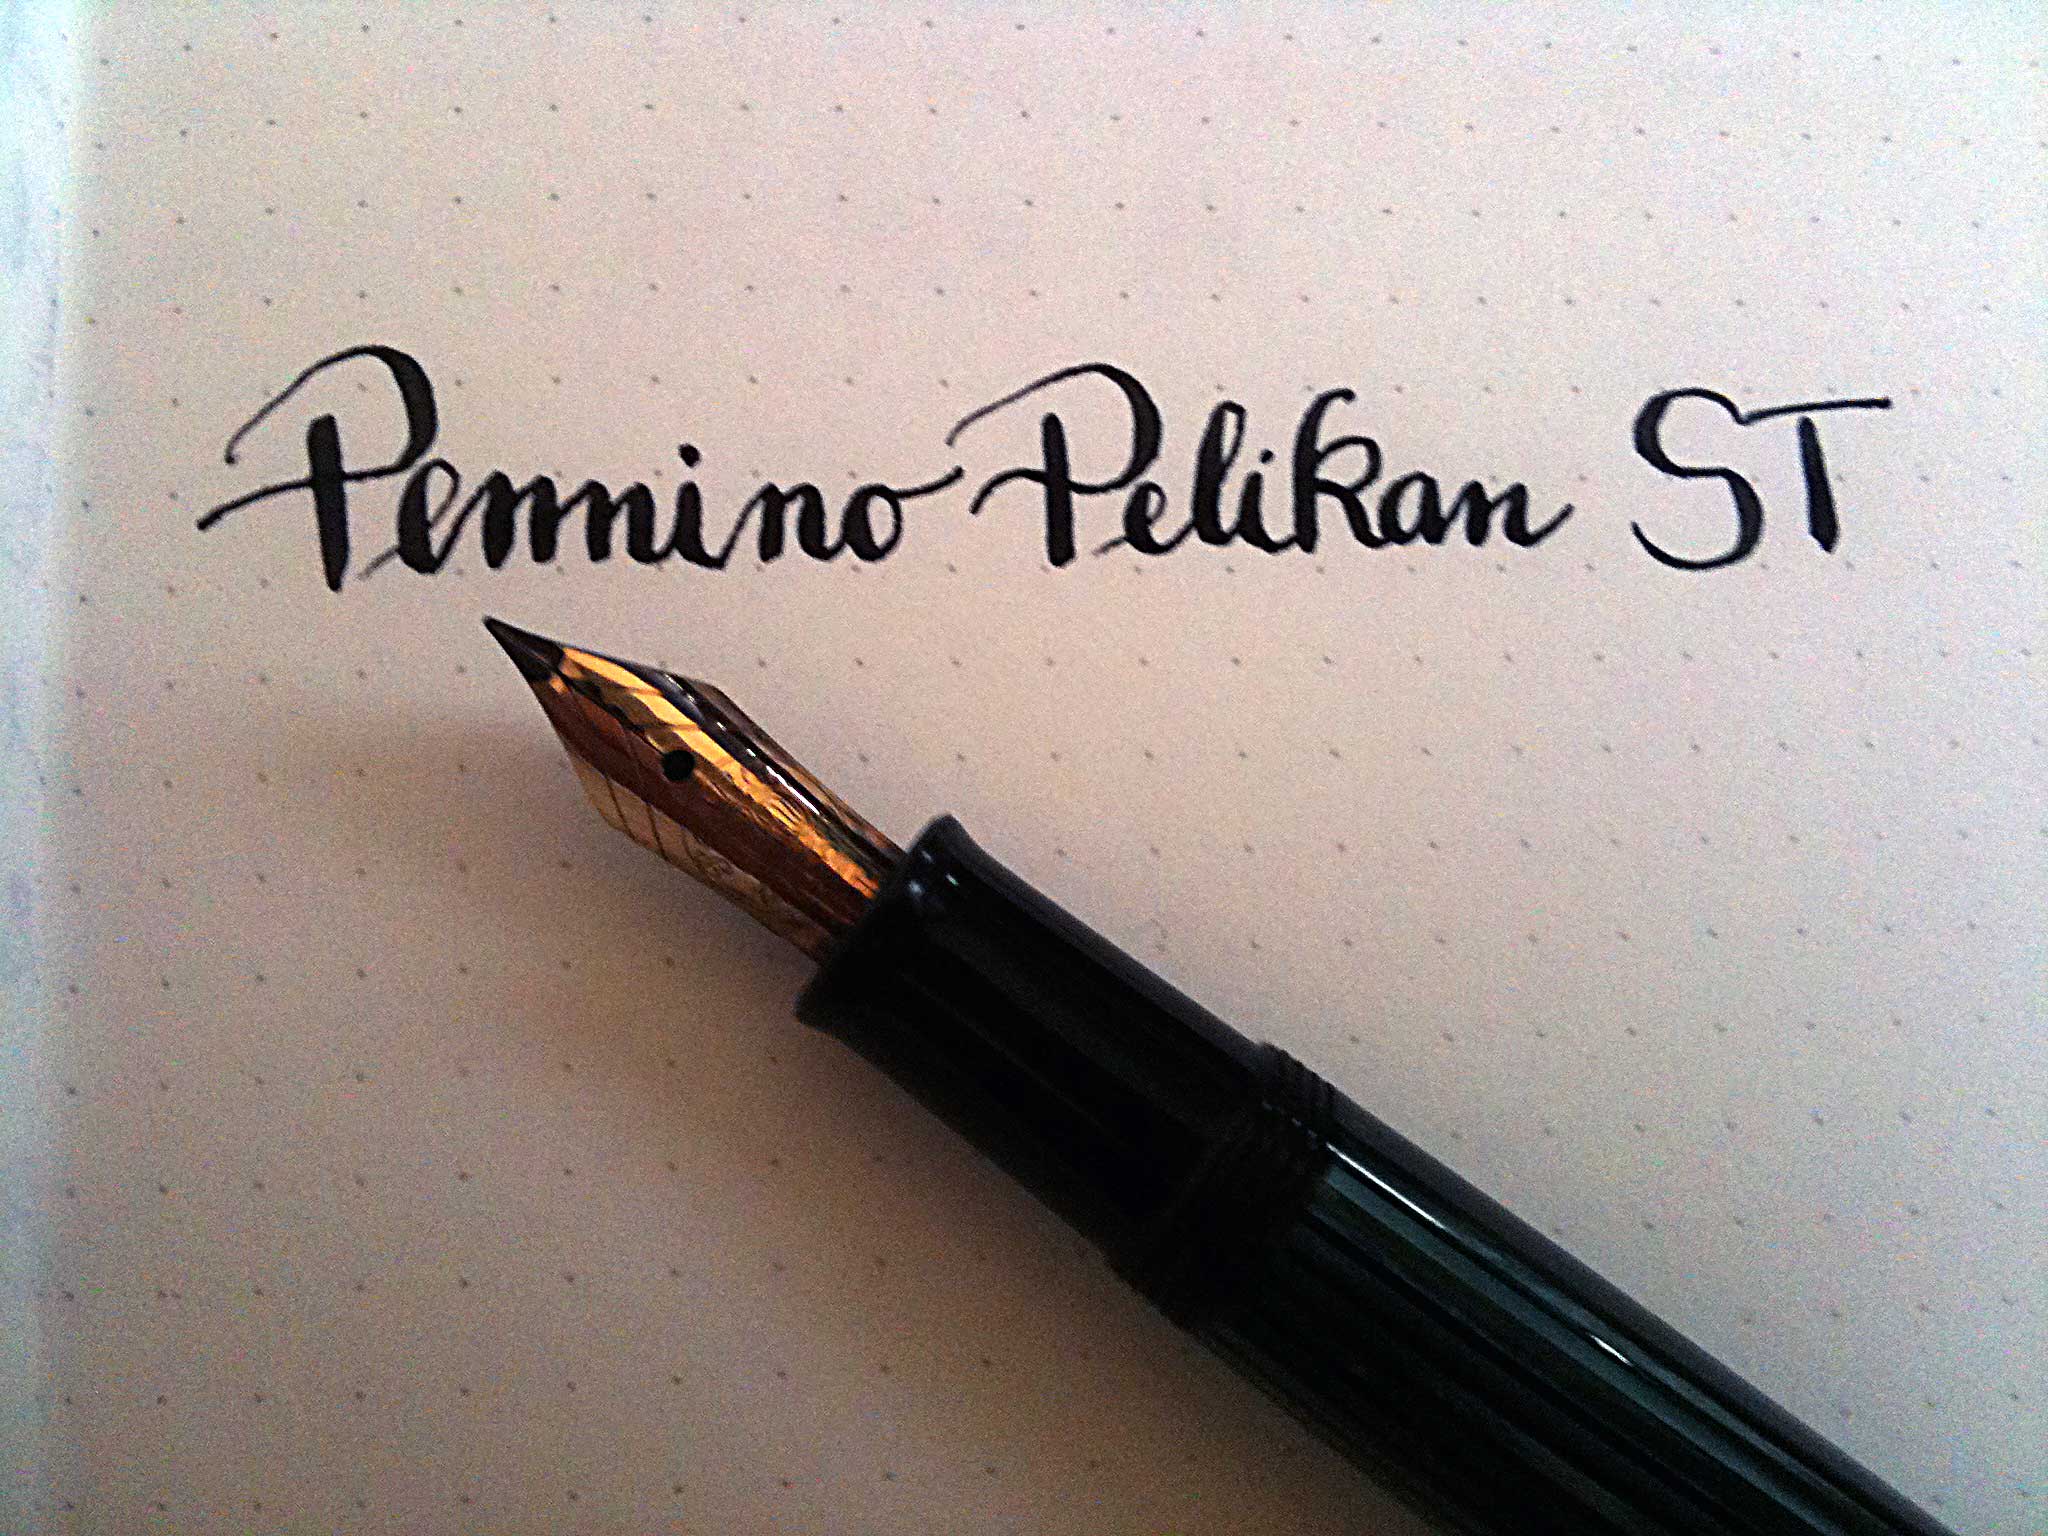 Pennino Pelikan ST